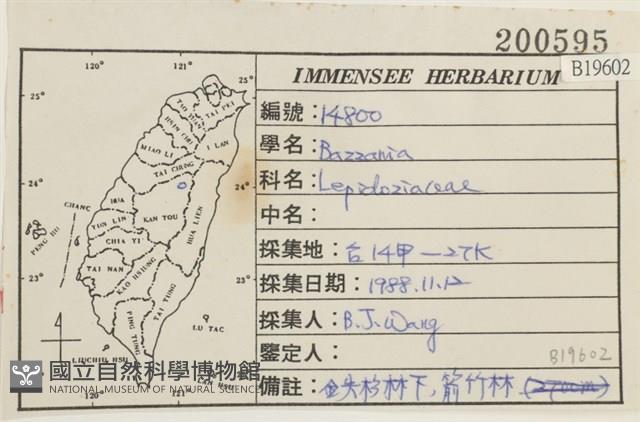 200595
B19602
IMMENSEE HERBARIUM
編號：14800
學名：Bazzania
科名：Lepidoziaceae
中名：
採集地：台14甲—27K
採集日期：1988.11.12
採集人：B.J.Wang
鑒定人：
B19602
備註：鉄杉林下,箭竹林 (2700m)
120° 121°
25° 25°
TAI PEI
I LAN
MIAO LI
TAI CHUNG
24° 24°
CHANG
HUA
YUN LIN
NAN TOU
HUA LIEN
PENG HU
CHIA YI
TAI NAN
KAO HSIUNG
23° 23°
TAI TUNG
PING TUNG
LU TAO
LIUCHIU HSU
LAN HSU
國立自然科學博物館
NATIONAL MUSEUM OF NATURAL SCIENCE